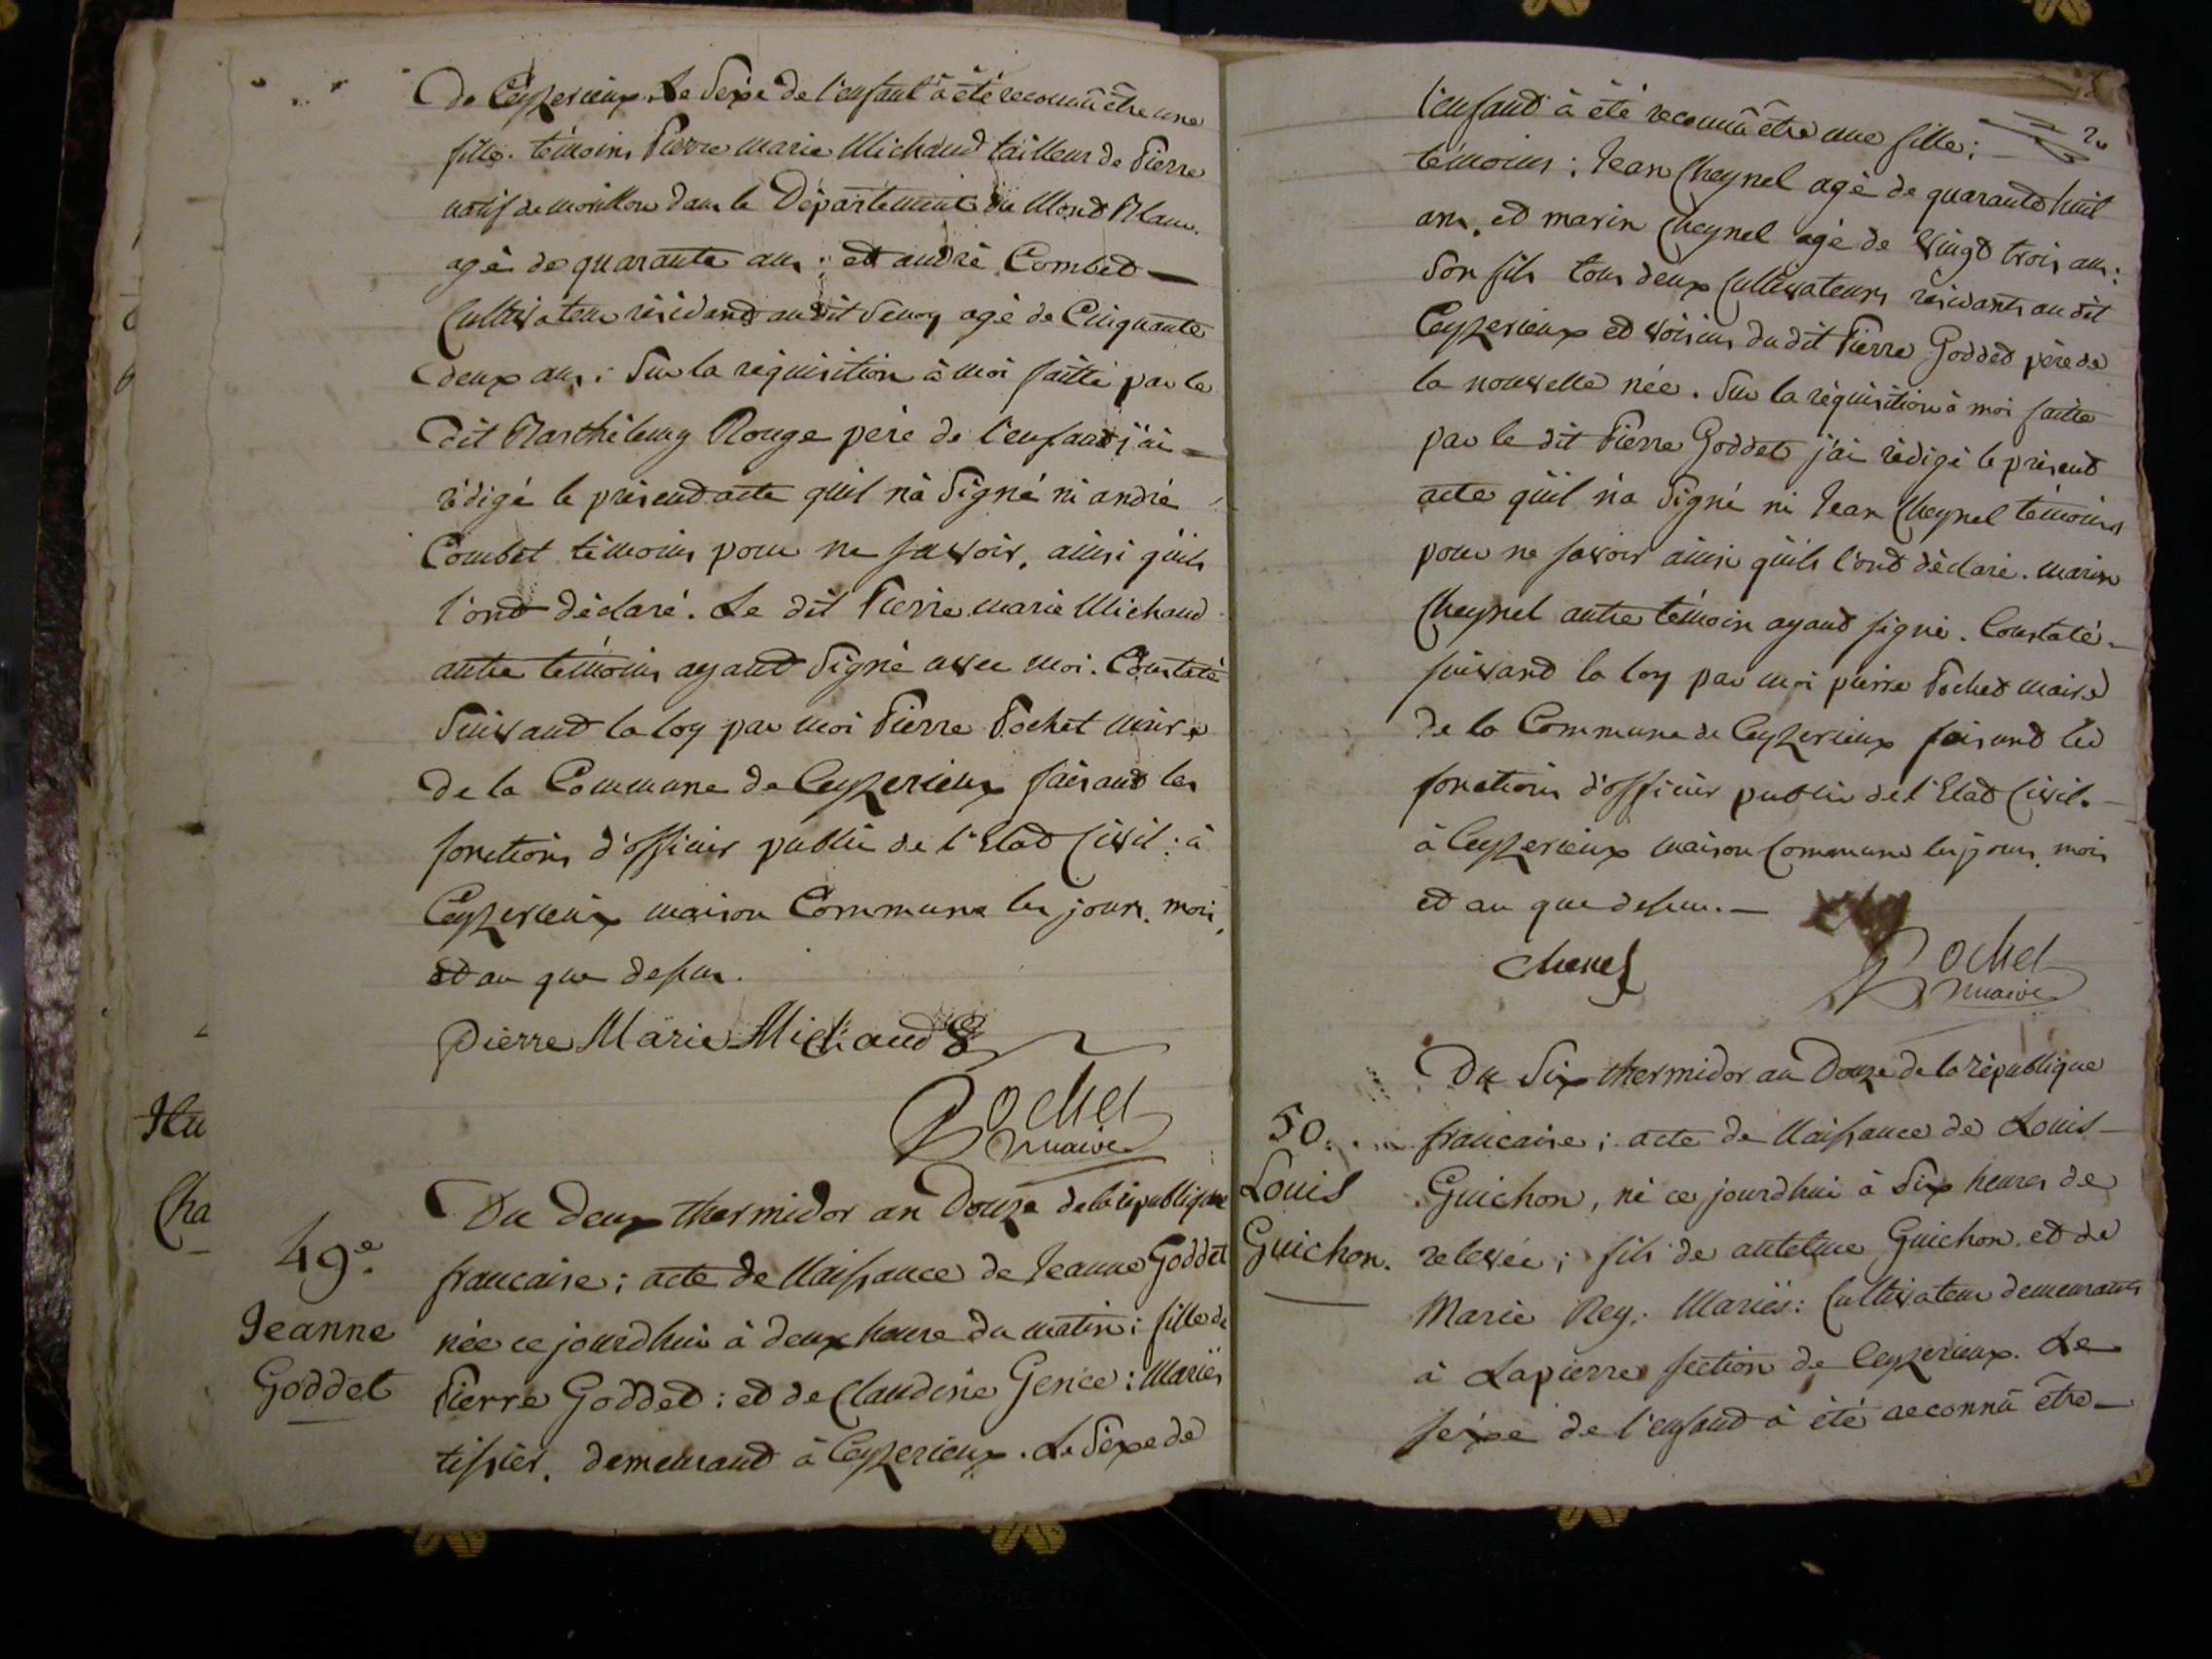 De Ceyzerieux. Le Sexe de l'enfant à été reconnû être une
fille. témoins Pierre marie Michaud tailleur de Pierre
natif de morillon dans le Département du Mond Blanc.
agé de quarante ans ; et andré Combet —
Cultivateur résidand au dit Senoy agé de Cinquante
deux ans : Sur la réquisition à moi faitte par le
dit Barthélemy Rouge père de l'enfant j'ai —
rédigé le présend acte quil nà Signé ni andré
Combet témoins pour ne savoir, ainsi quils
l'ond déclaré. Le dit Pierre marie Michaud
autre témoins ayand Signé avec moi. Constaté
Suivand la loy par moi Pierre Pochet maire
de la Commune de Ceyzerieux faisand les
fonctions d'officier public de l'Etad Civil : à
Ceyzerieux maison Commune les jours, mois,
et an que dessus.
Pierre Marie Michaud
Pochet
maire
Du deux thermidor an Douze de la république
49e.
francaise ; acte de Naissance de Jeanne Goddet
Jeanne
Goddet
née ce jourdhui à deux heure du matin ; fille de
Pierre Godded : et de Claudine Genée : Mariés
tissier, demeurand à Ceyzerieux. Le Sexe de
20
l'enfand à été reconnû être une fille ; —
témoins : Jean Cheynel agé de quarante huit
ans, et marin Cheynel agé de Vingt trois ans :
Son fils tous deux Cultivateurs résidants au dit
Ceyzerieux et voisins du dit Pierre Godded père de
la nouvelle née. Sur la réquisition à moi faitte
par le dit Pierre Goddet j'ai rédigé le présend
acte quil n'a Signé ni Jean Cheynel témoins
pour ne savoir ainsi quils l'ond déclaré. marin
Cheynel autre témoin ayand signé. Constaté —
suivand la loy par moi pierre Pochet maire
de la Commune de Ceyzerieux faisand les
fonctions d'officier public de l'Etad Civil. —
à Ceyzerieux maison Commune les jours, mois
et an que dessus. —
Chenel
Pochet
maire
Du Six thermidor an Douze de la république
50.
francaise ; acte de Naissance de Louis —
Louis
Guichon.
Guichon, né ce jourdhui à Six heures de
relevée ; fils de antelme Guichon, et de
Marie Rey. Mariés : Cultivateur demeurants
à Lapierre section de Ceyzerieux. Le
sexe de l'enfand à été reconnû être —
Cha